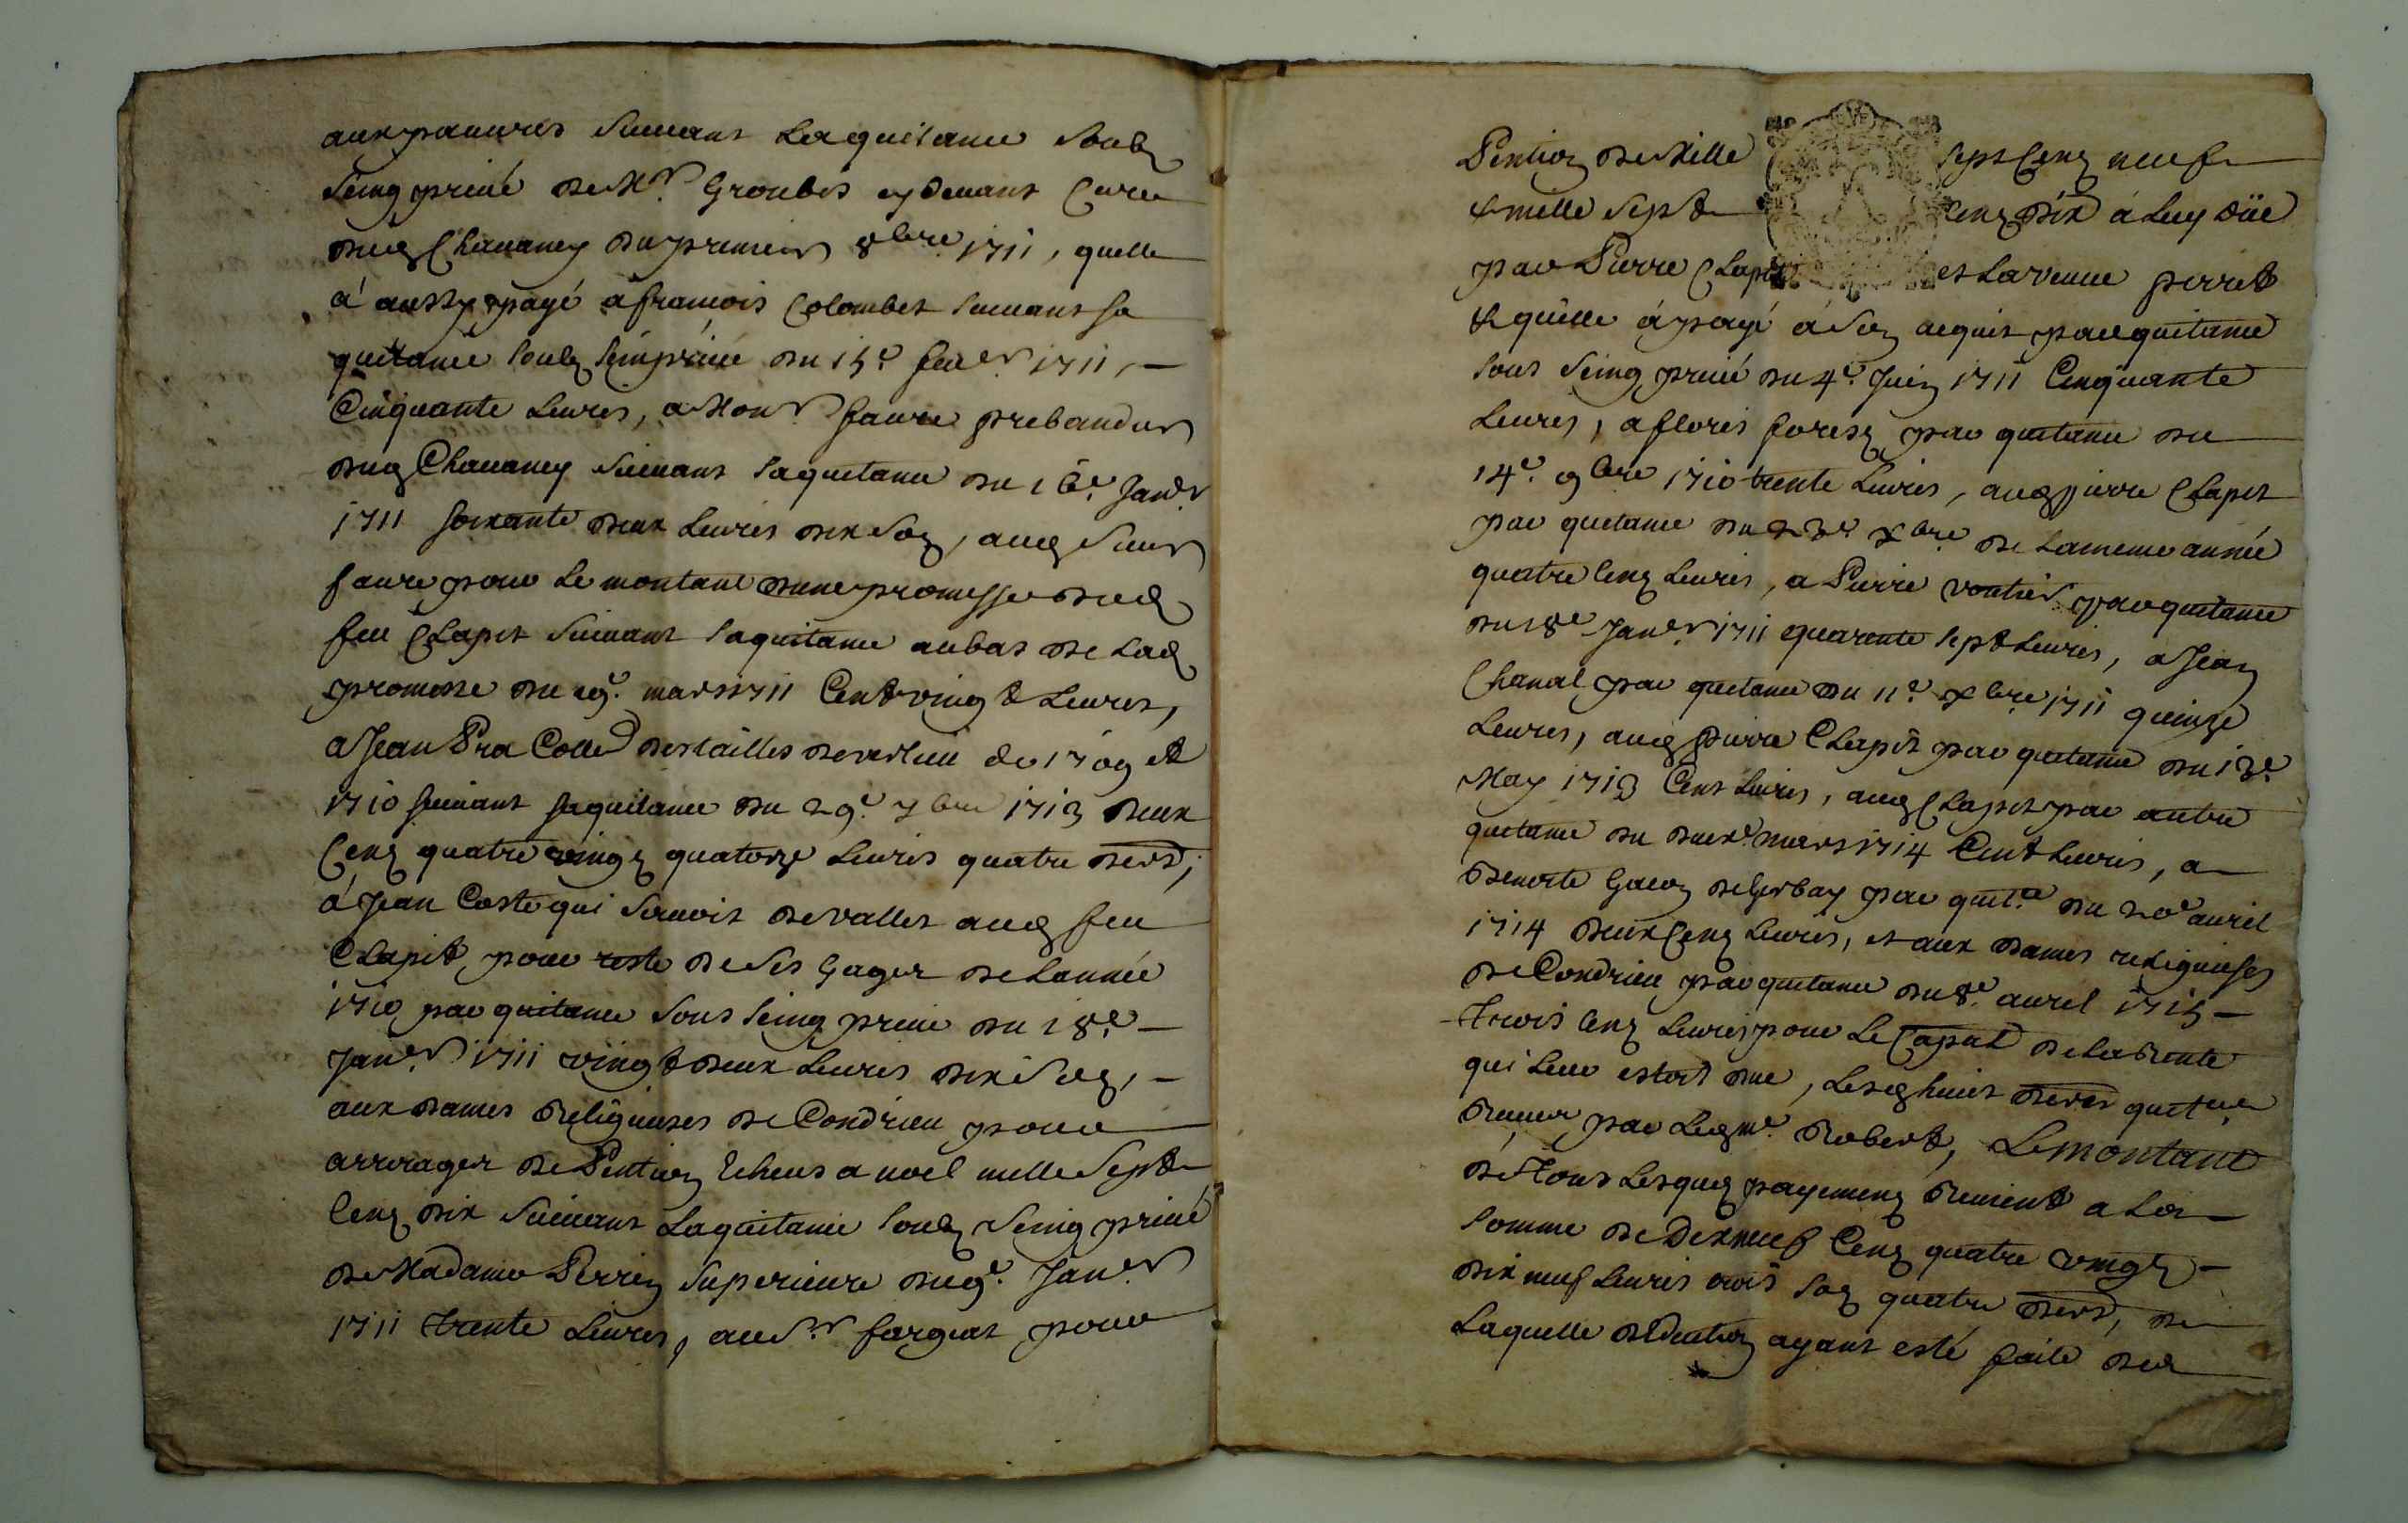 aux pauures suiuant laquitance soubz
seing priué de Mr. Groubet cy deuant Curé
dud Chauaney du premier 8bre 1711, quelle
á aussy payé a francois Colombet suiuant sa
quitance soubz seing priué du 15e. feur. 1711, —
Cinquante Liures, a Monr. faure prebandier
dud Chauaney suiuant saquitance du 16e. Janer.
1711 soixante deux Liures dix solz, aud sieur
faure pour le montant dune promesse dud
feu Clapit suiuant saquitance aubas de lad
promesse du 29e. mars 1711 Cent vingt Liures,
a Jean Pra Colle destailles de verlieu de 1709 et
1710 suiuant saquitance du 29e. 7bre 1713 deux
Cenz quatre vingz quatorze Liures quatre ders;
á Jean Coste qui seruoit de vallet aud feu
Clapit pour reste de ses gages de lannée
1710 par quitance sous seing priué du 18e. —
Janer. 1711 vingt deux Liures dix solz, —
aux dames Religieuses de Condrieu pour
arrerages de Pention Echeus a noel mille sept
Cenz dix suiuant laquitance soubz seing priué
de Madame Perrin superieure du 9e. Janer.
1711 trente Liures, au sr. fargeat pour
Pention de Mille sept Cenz neuf
& mille sept Cenz dix á luy düe
par Pierre Clapit et la veuue perret
& quelle á payé á son acquit par quitance
sous seing priué du 4e. Juin 1711 Cinquante
Liures, a floris forest par quitance du
14e. 9bre 1710 trente Liures, aud pierre Clapit
par quitance du 23e xbre. de lameme année
quatre Cenz Liures, a Pierre voutier par quitance
du 18e Janer. 1711 quarente sept Liures, a Jean
Chanal par quitance du 11e. xbre 1711 quinze
Liures, aud Pierre Clapit par quitance du 13e.
May 1713 Cent Liures, aud Clapit par autre
quitance du deuxe. mars 1714 Cent Liures, a
Benoite Gacon de Gerbay par quitce. du 20e auril
1714 deux Cenz Liures, et aux dames religieuses
de Condrieu par quitance du 8e. auril 1715 —
trois Cenz Liures pour le Capal de la Rente
qui leur estoit due, lesd huit dernes quitces
Receues par led me. Robert, Le montant
de tous lesquelz payemenz Reuient a la
somme de Dixneuf Cenz quatre vingtz —
dix neuf Liures trois solz quatre ders, de
laquelle deduction ayant esté faite de